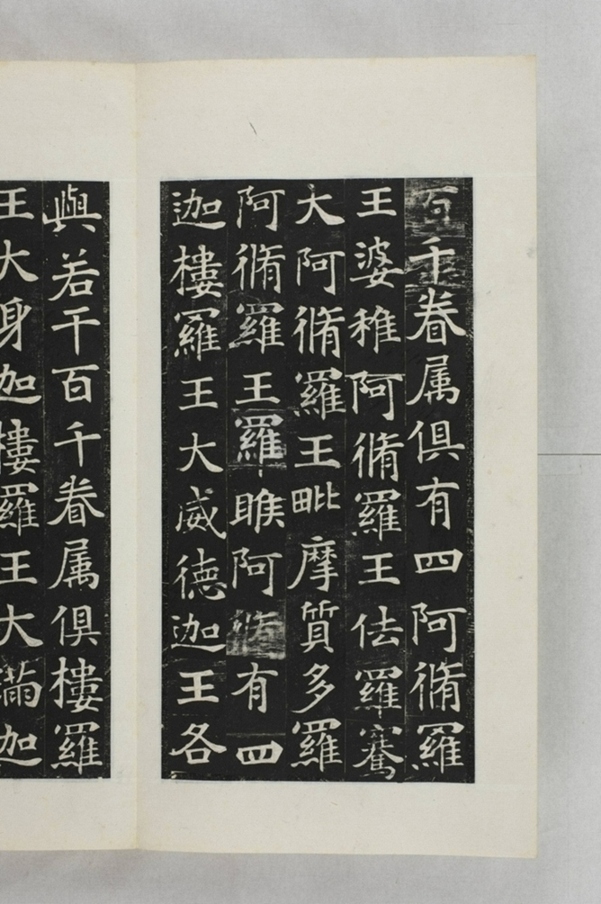 百千眷属俱有四阿脩羅
王婆稚阿脩羅王佉羅騫
大阿脩羅王毗摩質多羅
阿脩羅王羅睺阿脩有四
迦樓羅王大威德迦王各
與若干百千眷属俱樓羅
王大身迦樓羅王大滿迦